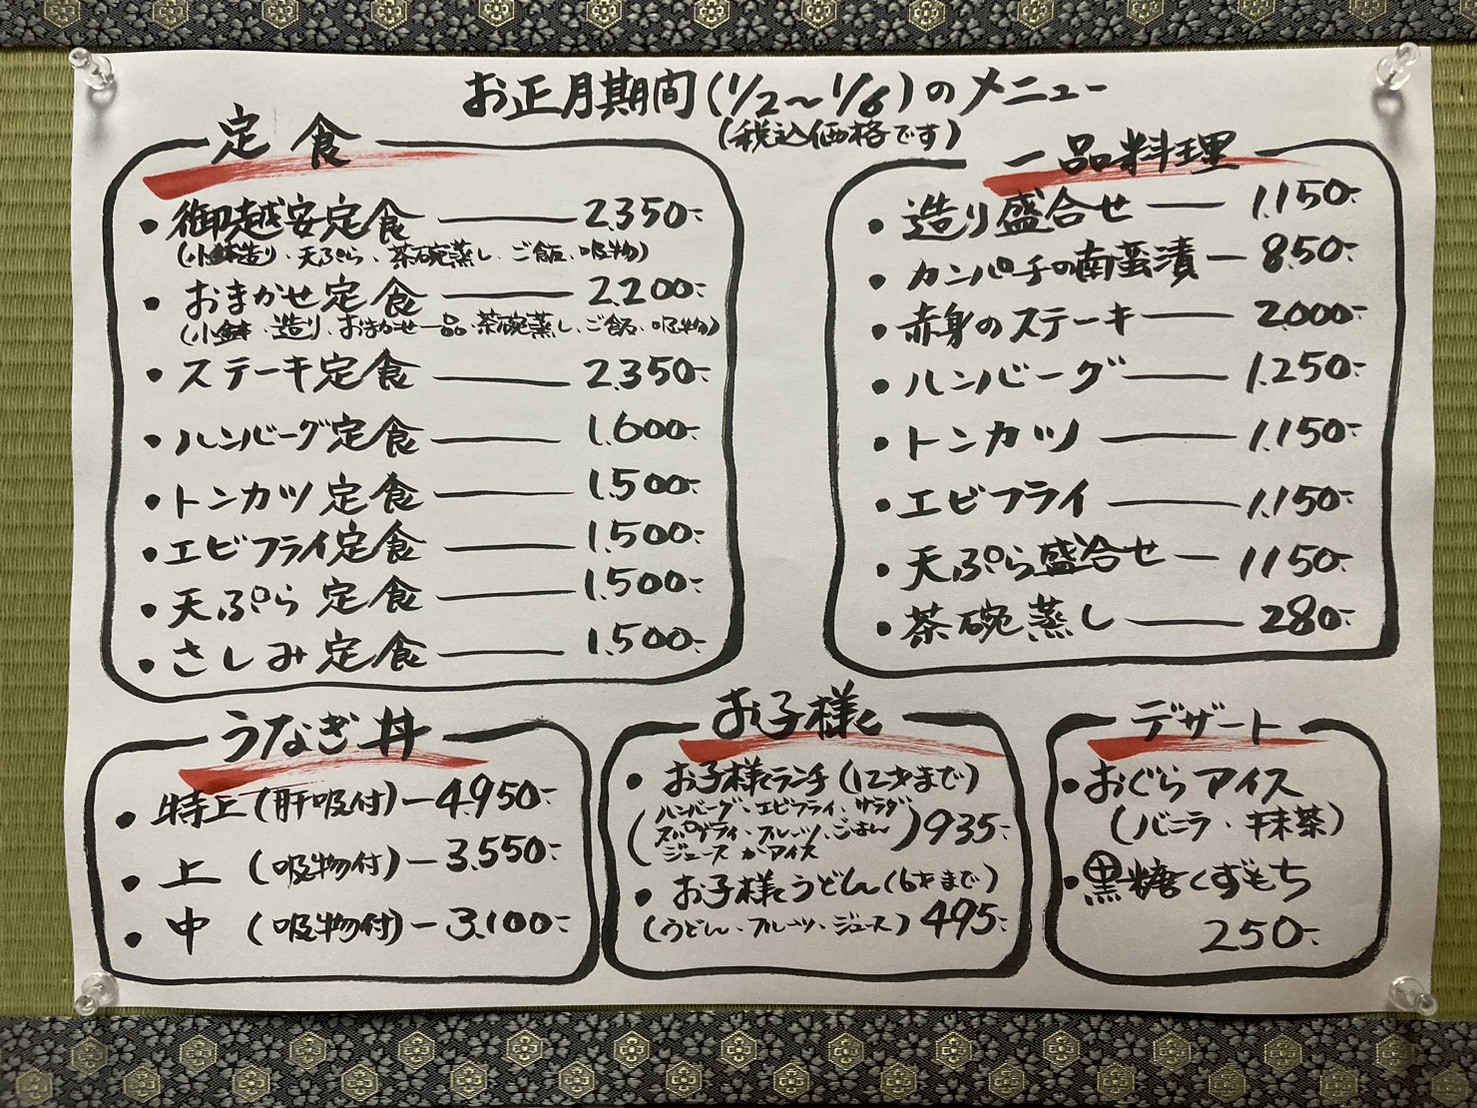 お正月期間(1/2～1/6)のメニュー
(税込価格です)
定食
・御越安定食 ― 2,350-
(小鉢、造り、天ぷら、茶碗蒸し、ご飯、吸物)
・おまかせ定食 ― 2,200-
(小鉢・造り・おまかせ一品・茶碗蒸し、ご飯・吸物)
・ステーキ定食 ― 2,350-
・ハンバーグ定食 ― 1,600-
・トンカツ定食 ― 1,500-
・エビフライ定食 ― 1,500-
・天ぷら定食 ― 1,500-
・さしみ定食 ― 1,500-
一品料理
・造り盛合せ ― 1,150-
・カンパチの南蛮漬 ― 850-
・赤身のステーキ ― 2,000-
・ハンバーグ ― 1,250-
・トンカツ ― 1,150-
・エビフライ ― 1,150-
・天ぷら盛合せ ― 1150-
・茶碗蒸し ― 280-
うなぎ丼
・特上(肝吸付) ― 4,950-
・上 (吸物付) ― 3,550-
・中 (吸物付) ― 3,100-
お子様
・お子様ランチ(12才まで)
(ハンバーグ、エビフライ、サラダ
スパゲティ、フルーツ、ごはん
ジュースかアイス) 935-
・お子様うどん(6才まで)
(うどん、フルーツ、ジュース) 495-
デザート
・おぐらアイス
(バニラ・抹茶)
・黒糖くずもち
250-